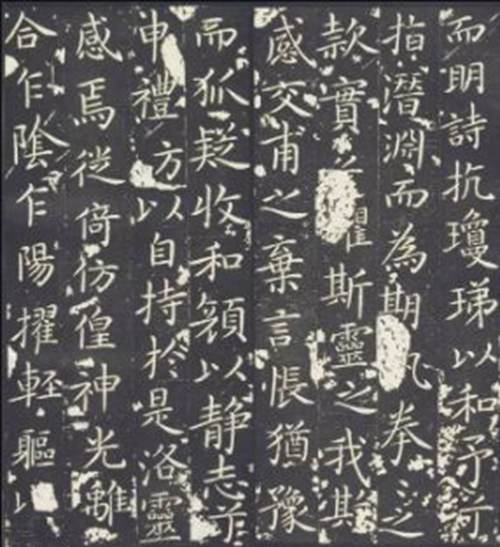 而明詩抗瓊珶以和予兮
指潛淵而為期拳〻之
款實兮懼斯靈之我欺
感交甫之棄言悵猶豫
而狐疑收和顏以静志兮
申禮方以自持於是洛靈
感焉徙倚彷徨神光離
合乍陰乍陽擢輕軀以